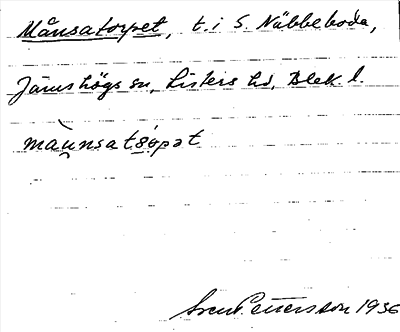 Månsatorpet, t. i S. Näbbeboda,
Jämshögs sn, Listers hd, Blek. l.
màu̯nsatšo̱pət
Sven Pettersson 1936